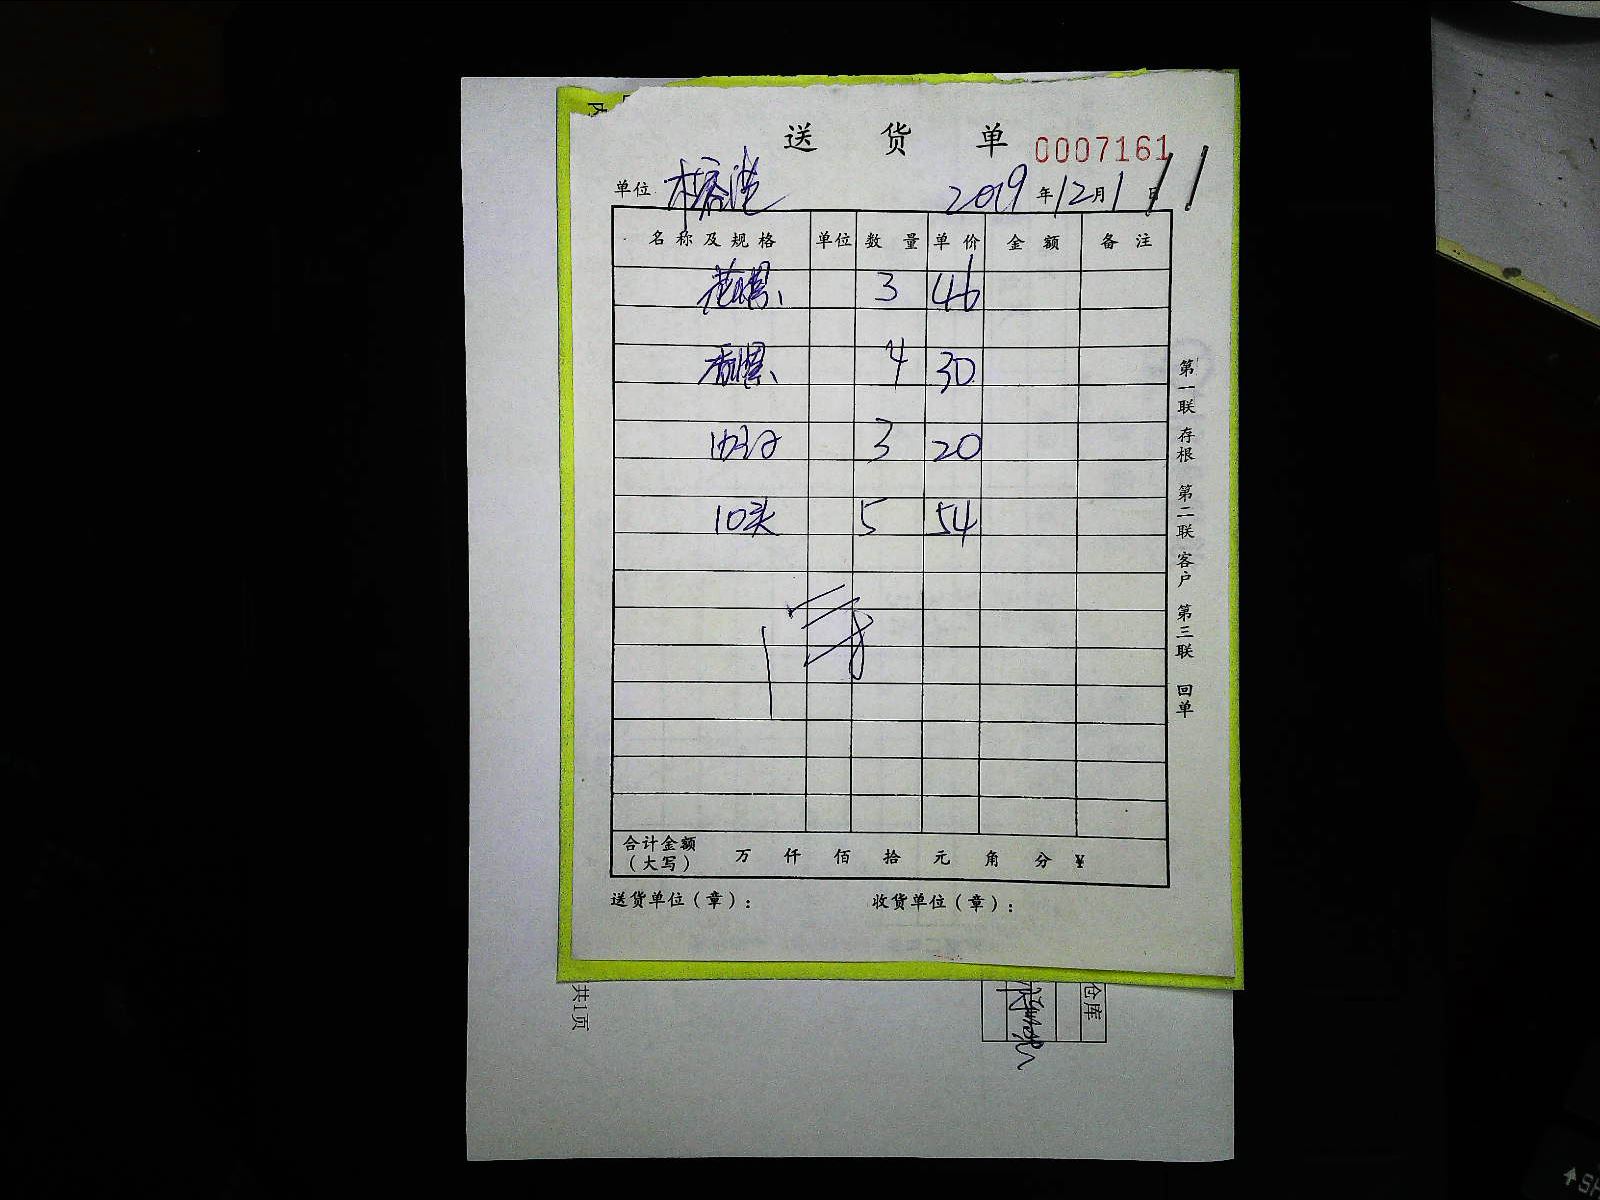 送货单 0007161
单位 榕港 2019年12月11日
名称及规格 单位 数量 单价 金额 备注
花螺 3 46
香螺 4 30
3 20
10头 5 54
合计金额(大写) 万 仟 佰 拾 元 角 分 ¥
送货单位(章): 收货单位(章):
第一联 存根 第二联 客户 第三联 回单
共1页
仓库